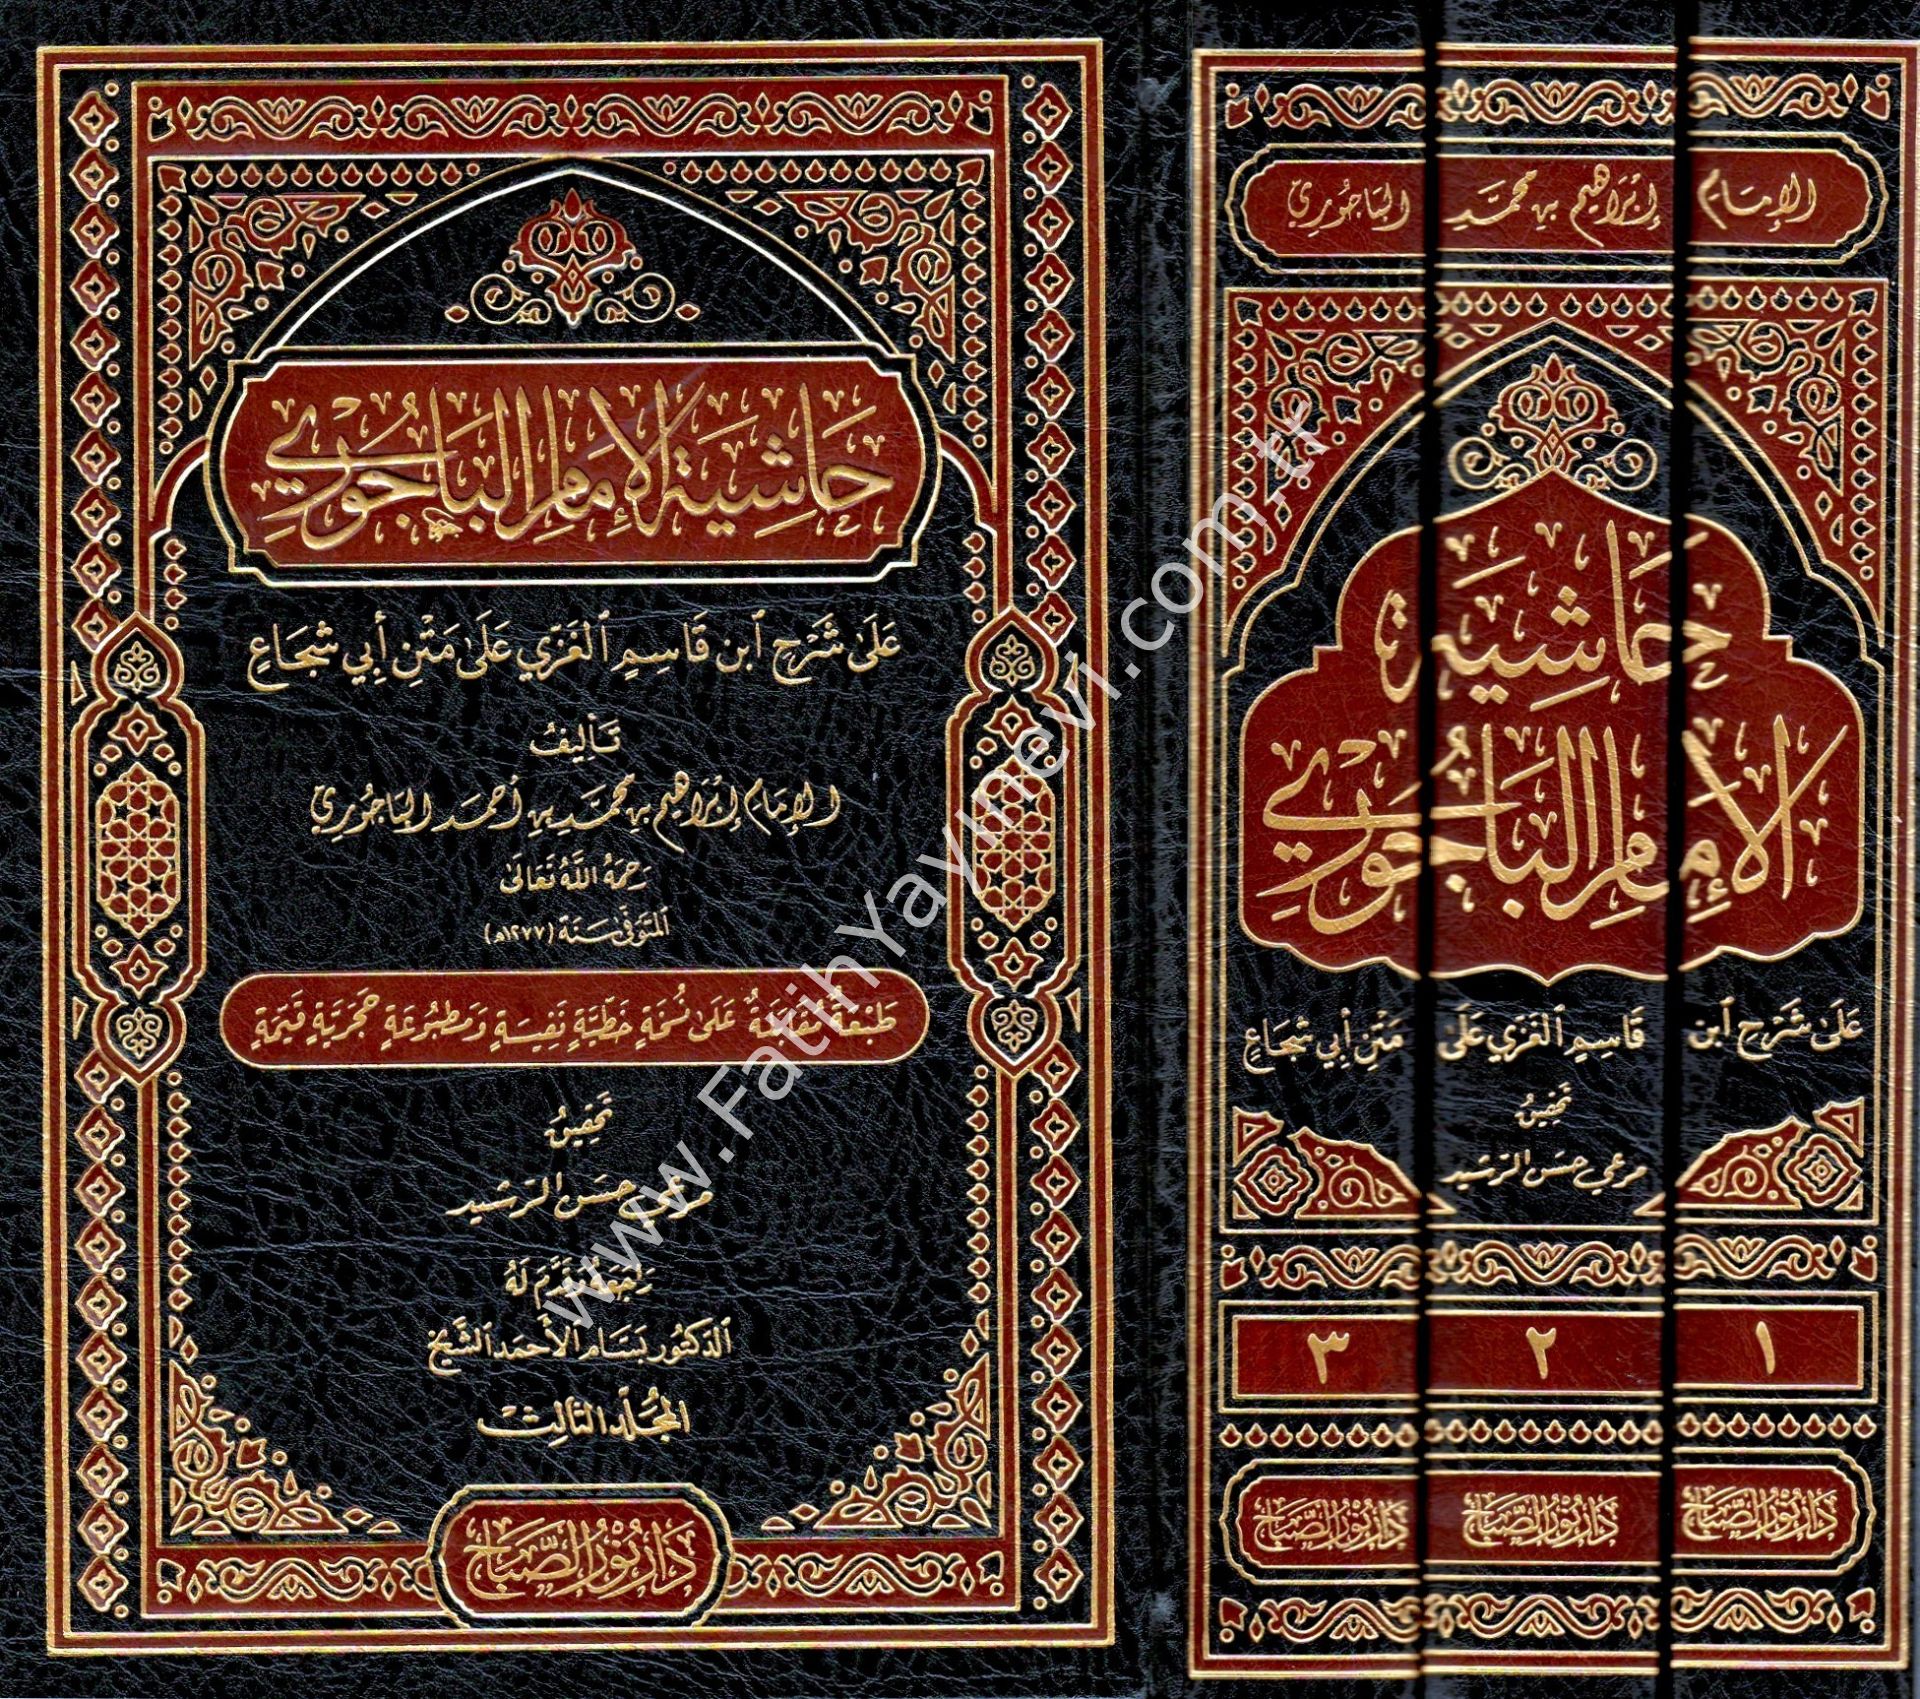 حَاشِيَة الإِمَامِ البَاجُورِيّ
عَلَى شَرْحِ ابْنِ قَاسِمٍ الْغَزِّي عَلَى مَتْنِ أَبِي شُجَاعٍ
تَأْلِيفُ
الإِمَامِ إِبْرَاهِيم بْنِ مُحَمَّدِ بْنِ أَحْمَدَ البَاجُورِيّ
رَحِمَهُ اللهُ تَعَالَى
المُتَوَفَّى سَنَة (١٢٧٧هـ)
طَبْعَةٌ مُقَابَلَةٌ عَلَى نُسْخَةٍ خَطِّيَّةٍ نَفِيسَةٍ وَمَطْبُوعَةٍ حَجَرِيَّةٍ قَيِّمَةٍ
تَحْقِيقُ
مرعي حسن الرشيد
رَاجَعَهُ وَقَدَّمَ لَهُ
الدكتور بسام الأحمد الشيخ
المُجَلَّد الثَّالِث
دَارُ نُورِ الصَّبَاحِ
الإِمَام إِبْرَاهِيم بن مُحَمَّد البَاجُورِيّ
حَاشِيَة
الإِمَامِ البَاجُورِيّ
عَلَى شَرْحِ ابْنِ قَاسِمٍ الْغَزِّي عَلَى مَتْنِ أَبِي شُجَاعٍ
تَحْقِيقُ
مرعي حسن الرشيد
١ ٢ ٣
دَارُ نُورِ الصَّبَاحِ دَارُ نُورِ الصَّبَاحِ دَارُ نُورِ الصَّبَاحِ
www.FatihYayinevi.com.tr